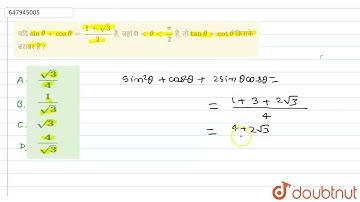 647945005
यदि sin θ + cos θ = (1 + √3)/2 है, जहां 0 < θ < π/2 है, तो tan θ + cot θ किसके
बराबर है?
A. √3/4
B. 1/√3
C. √3
D. 4/√3
sin²θ + cos²θ + 2 sinθ cosθ =
= (1 + 3 + 2√3)/4
= 4 + 2√3
doubtnut